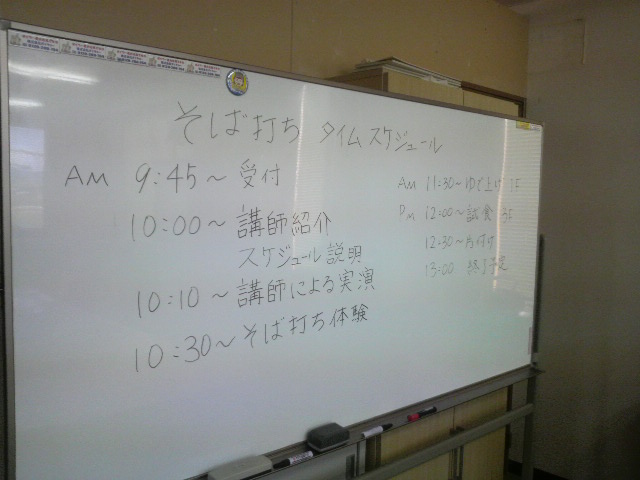 そば打ち タイムスケジュール
AM 9:45～受付
10:00～講師紹介
スケジュール説明
10:10～講師による実演
10:30～そば打ち体験
AM 11:30～ゆで上げ
PM 12:00～試食
12:30～片付け
13:00 終了予定